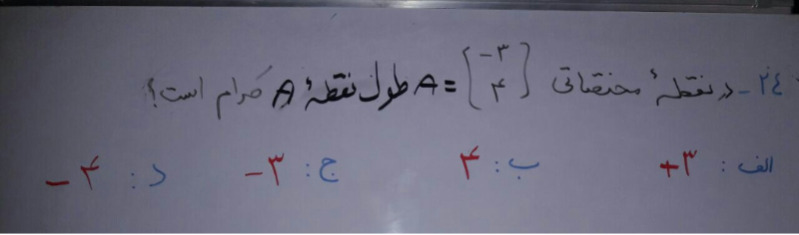 ۲٤- در نقطهٔ مختصاتی A = [-۳ ۴] طول نقطهٔ A کدام است؟
الف: +۳ ب: ۴ ج: -۳ د: -۴